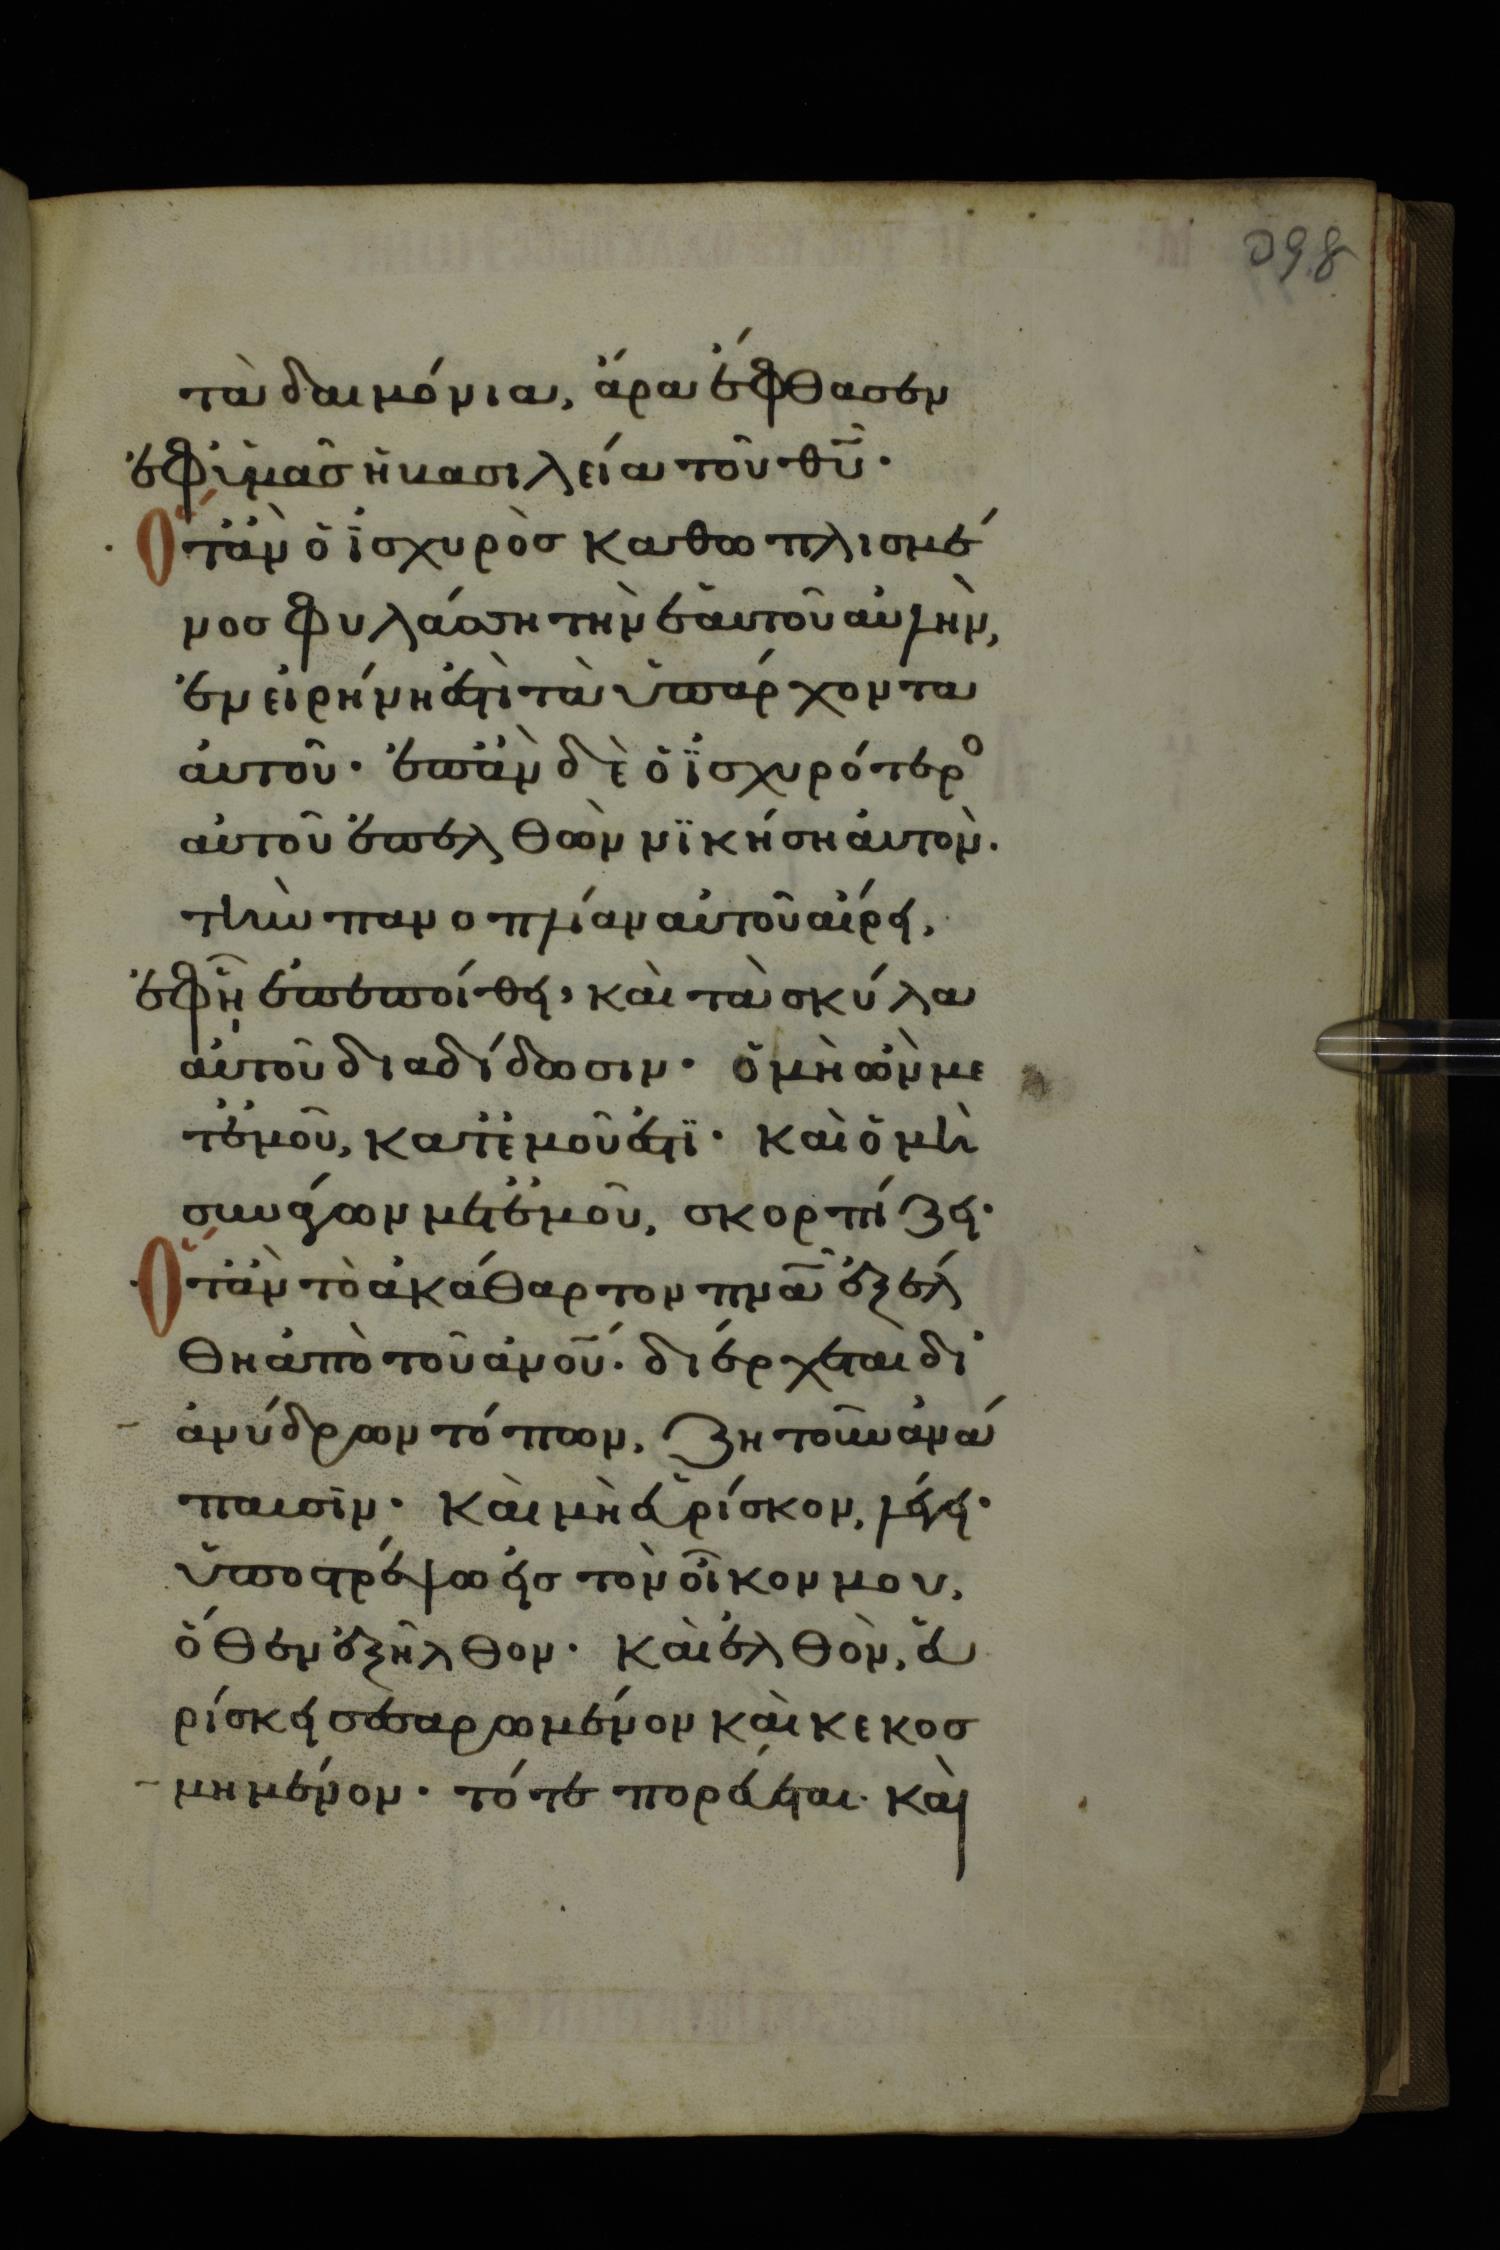 298
τὰ δαιμόνια, ἄρα ἔφθασεν
ἐφ ὑμᾶσ ἡ βασιλεία τοῦ θῦ·
Ὅταν ὁ ἰσχυρὸσ καθωπλισμέ
νοσ φυλάσση τὴν ἑαυτοῦ αὐλὴν,
ἐν εἰρήνη ἐστὶ τὰ ὑπάρχοντα
αὐτοῦ· ἐπὰν δὲ ὁ ἰσχυρότερο
αὐτοῦ ἐπελθὼν νϊκήση ἀυτὸν.
τὴν πανοπλίαν αὐτοῦ αἴρει,
ἐφ ἧ ἐπεποίθει, καὶ τὰ σκύλα
αὐτοῦ διαδίδωσιν· ὁ μὴ ὢν με
τ ἐμοῦ, κατ ἐμοῦ ἐστϊ· καὶ ὁ μὴ
συνάγων μετ ἐμοῦ, σκορπίζει·
Ὅταν τὸ ἀκάθαρτον πνᾶ ἐξέλ
θη ἀπὸ τοῦ ἀνοῦ· διέρχεται δι
ἀνύδρων τόπων, ζητοῦν ἀνά
παυσῒν· καὶ μὴ εὑρίσκον, λέγει·
ὑποστρέψω εἰσ τὸν οἶκον μου,
ὅθεν ἐξῆλθον· καὶ ἐλθὸν, εὑ
ρίσκει σεσαρωμένον καὶ κεκοσ
μημένον· τότε πορεύεται· καὶ